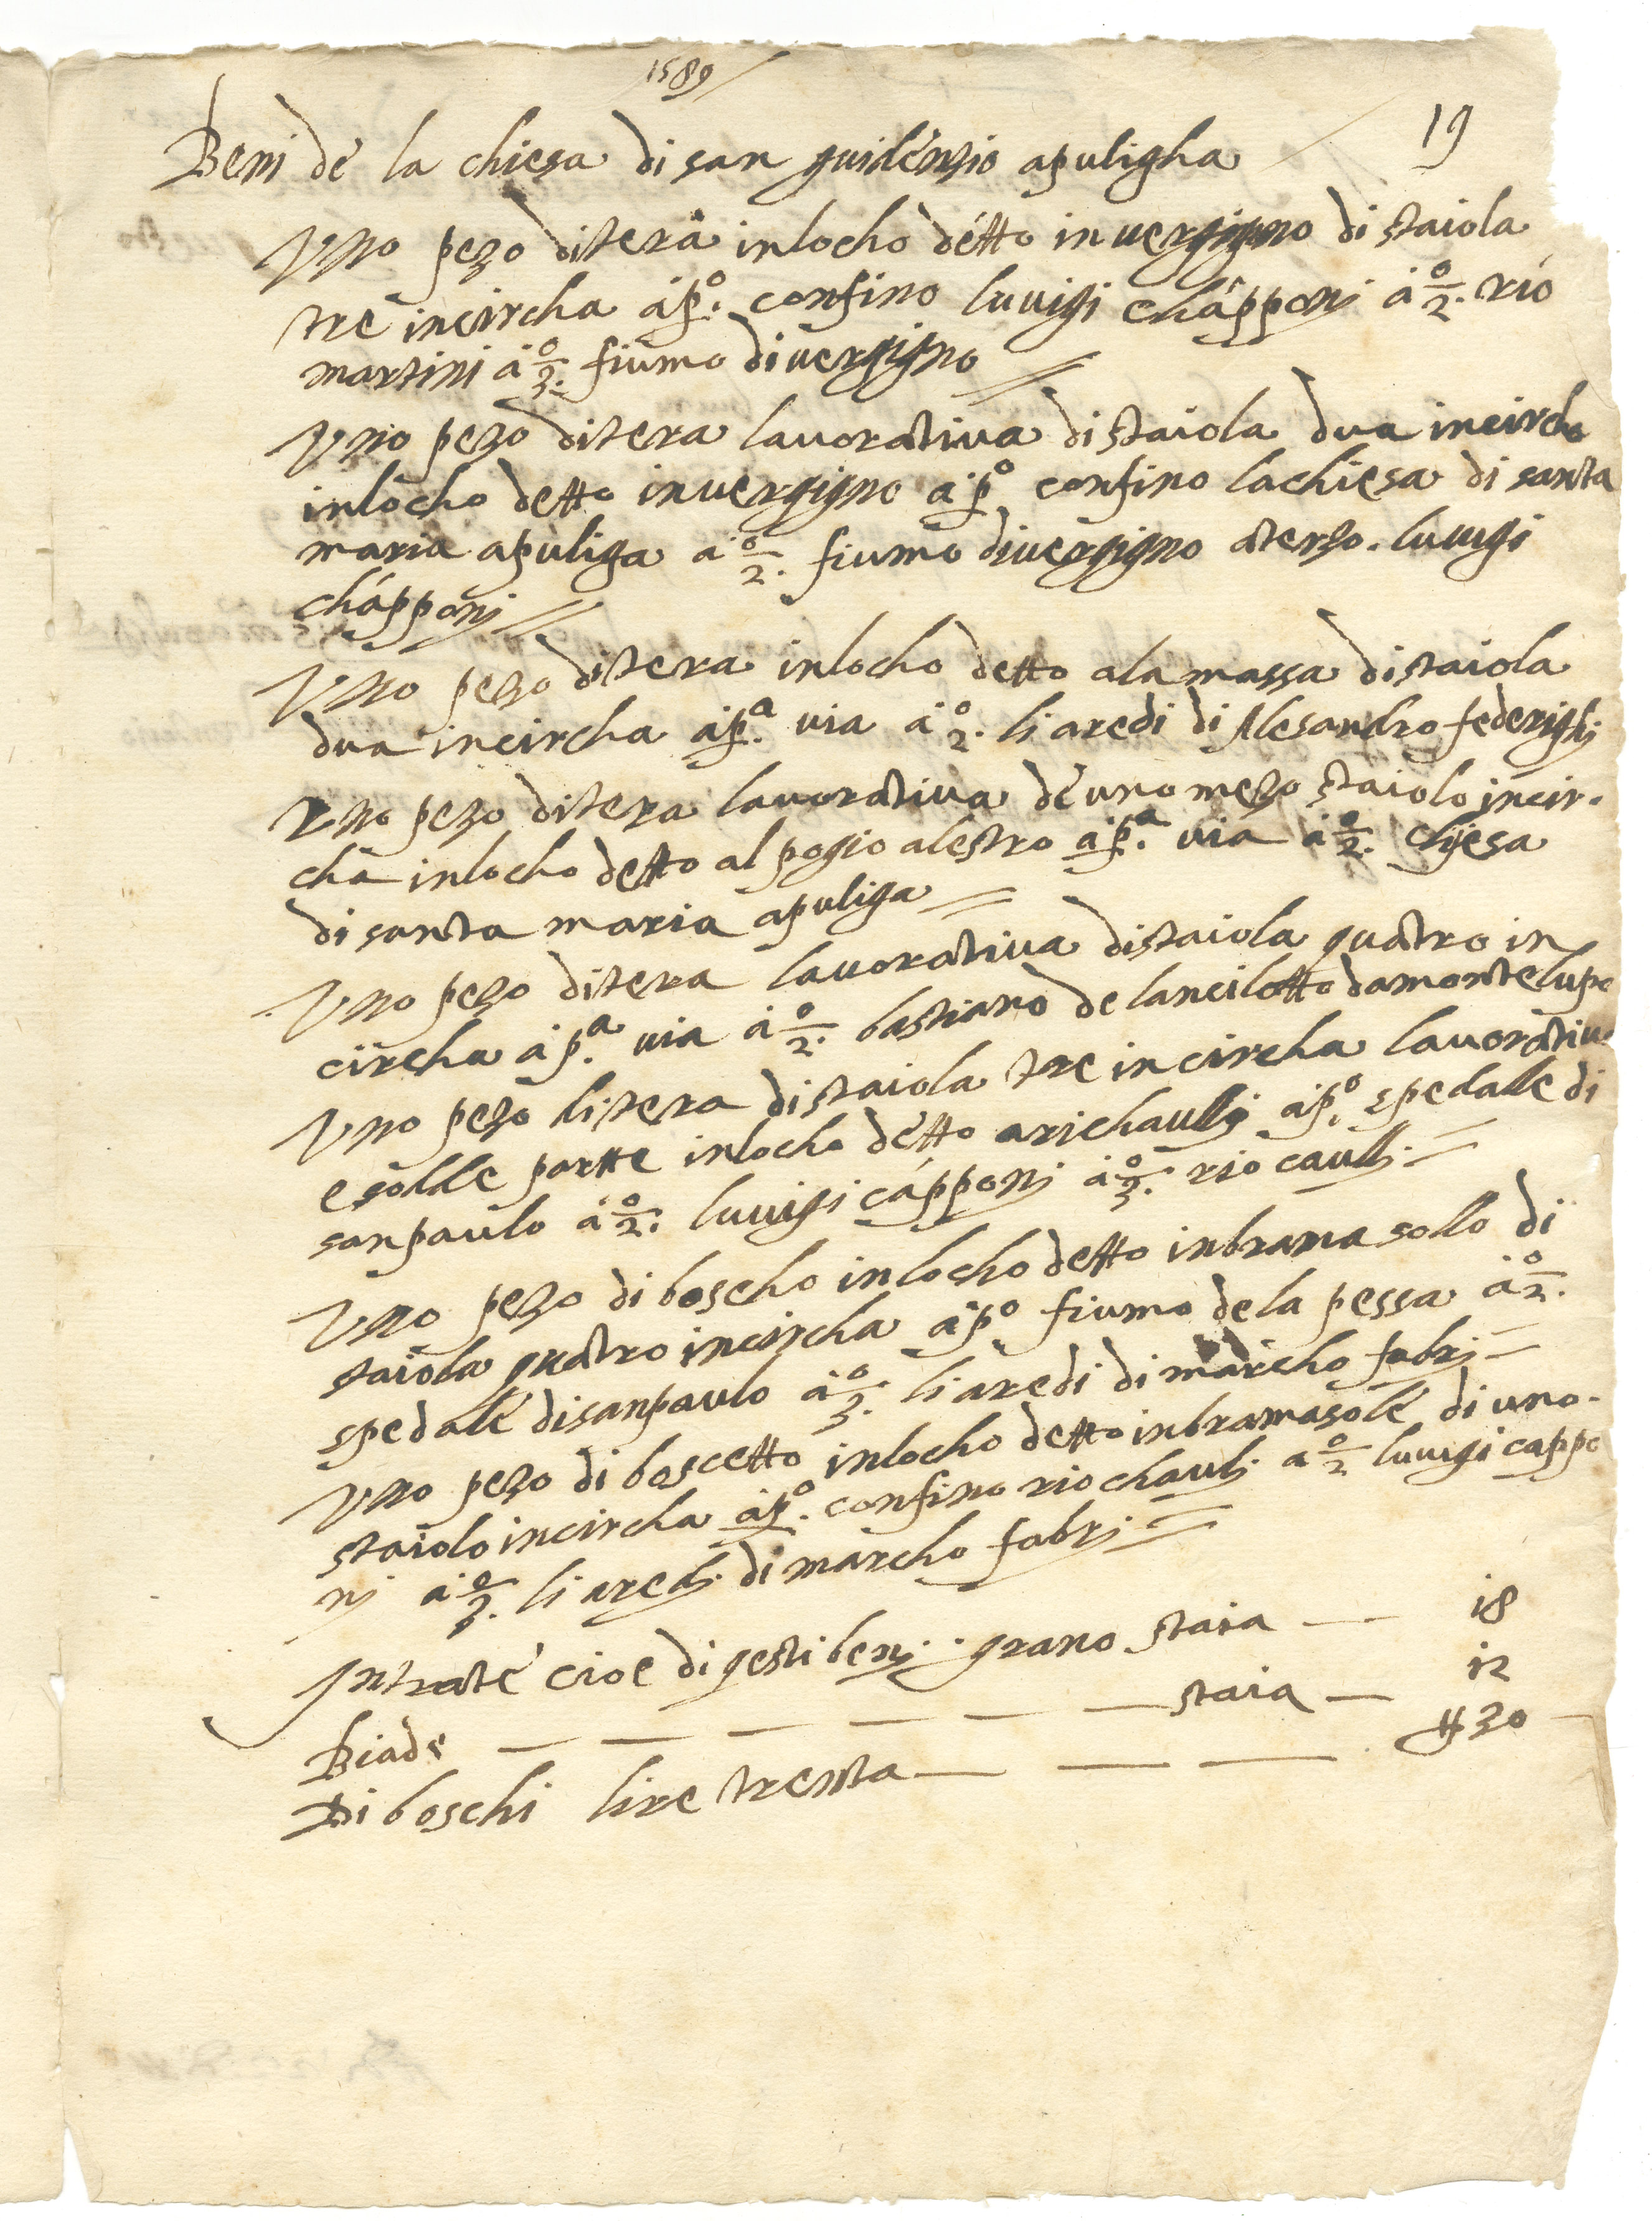 1589
19
Beni de la chiesa di san guidenzio apuligha
Vno pezo ditera inlocho detto in vergigno di staiola
tre incircha a po. confino luuigi chapponj a 2o. rio
martini a 3o. fiumo diuergigno
Vno pezo ditera lauoratiua distaiola dua incircha
inlocho detto inuergigno a po confino lachiesa di santa
maria apuliga a 2o. fiumo diuergigno aterzo. luuigi
chapponj
Vno pezo ditera inlocho detto ala massa distaiola
dua incircha a pa. uia a 2o. li aredi di Alesandro federighj
Vno pezo ditera lauoratiua de uno mezo staiolo incir.
cha inlocho detto al pogio alestro a pa. uia a 2o. chjesa
di santa maria apuliga
Vno pezo ditera lauoratiua distaiola quatro in
circha a pa. uia a 2o. bastiano de lancilotto damontelupo
Vno pezo ditera distaiola tre incircha lauoratiua
e solle partte inlocho detto arichaullj a po. spedalle di
sanpaulo a 2o. luuigi capponj a 3o. rio caullj.
Vno pezo di boscho inlocho detto inbrama sollo di
staiola quatro incircha a po fiumo dela pessa a 2o.
spedale disanpaulo a 3o. li aredi di marcho fabrj
Vno pezo di boscetto inlocho detto inbramasole di uno.
staiolo incircha a po. confino rio chaulj a 2o luuigi cappo
nj a 3o. li aredj. di marcho fabrj
Intrate cioe di gesti benj. grano staia 18
Biade staia 12
Di boschi lire trenta ₶ 30